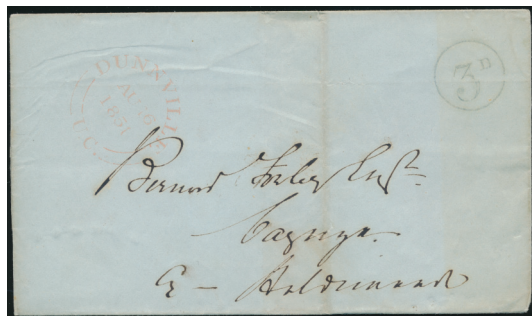 DUNNVILLE
AU
1851
U.C.
3D
Bernard Foley Esqr
Cayuga
Co — Haldimand